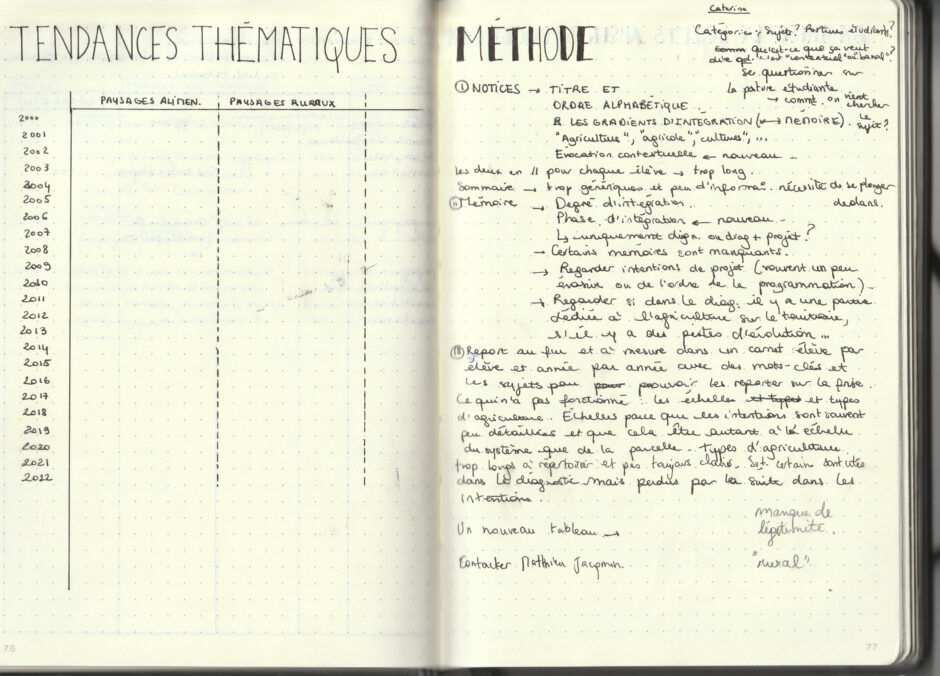 TENDANCES THÉMATIQUES
PAYSAGES ALIMEN. PAYSAGES RURAUX
2000
2001
2002
2003
2004
2005
2006
2007
2008
2009
2010
2011
2012
2013
2014
2015
2016
2017
2018
2019
2020
2021
2022
76
MÉTHODE
Caterina
Catégories; sujets? Parties étudiants?
qu'est-ce que ça veut
dire qd. c'est "contextuel" ou banal"?
Se questionner sur
la pature étudiante
→ comt. on vient
chercher
le
sujet?
I NOTICES → TITRE ET
ORDRE ALPHABÉTIQUE
R. LES GRADIENTS D'INTEGRATION (↔ MÉMOIRE).
"Agriculture", "agricole", "cultures", ...
Evocation contextuelle ← nouveau –
Les deux en // pour chaque élève → trop long.
Sommaire → trop génériques et peu d'informa°. nécessité de se plonger
dedans.
II Mémoire → Degré d'intégration.
Phase d'intégration ← nouveau –
↳ uniquement diagn. ou diag + projet?
→ Certains mémoires sont manquants.
→ Regarder intentions de projet (souvent un peu
évasive ou de l'ordre de la programmation) –
→ Regarder si dans le diag. il y a une partie
dédiée à l'agriculture sur le territoire,
s'il y a des pistes d'évolution ...
III Report au fur et à mesure dans un carnet élève par
élève et année par année avec des mots-clés et
les sujets pour pouvoir les reporter sur la frise.
Ce qui n'a pas fonctionné : les échelles et types et types
d'agriculture. Échelles parce que les intentions sont souvent
peu détaillées et que cela être autant à la échelle
du système que de la parcelle. Types d'agriculture
trop longs à répertorier et pas toujours clairs. certains sont cités
dans le diagnostic mais perdus par la suite dans les
intentions.
Un nouveau tableau →
manque de
légitimité.
Contacter Mathieu Jacqmin.
"rural"
77